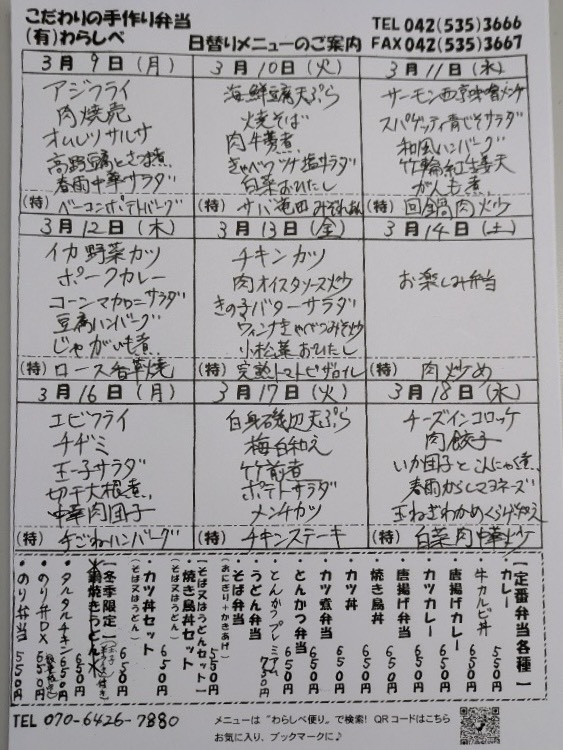 こだわりの手作り弁当
(有)わらしべ
日替りメニューのご案内
TEL 042(535)3666
FAX 042(535)3667
3月9日(月)
アジフライ
肉焼売
オムレツサルサ
高野豆腐とさつま煮
春雨中華サラダ
(特) ベーコンポテトバーグ
3月10日(火)
海鮮豆腐天ぷら
焼そば
肉牛蒡煮
きゃべつツナ塩サラダ
白菜おひたし
(特) サバ竜田みぞれあん
3月11日(水)
サーモン西京味噌メンチ
スパゲッティ青じそサラダ
和風ハンバーグ
竹輪紅生姜天
がんも煮
(特) 回鍋肉炒
3月12日(木)
イカ野菜カツ
ポークカレー
コーンマカロニーサラダ
豆腐ハンバーグ
じゃがいも煮
(特) ロース香草焼
3月13日(金)
チキンカツ
肉オイスタソース炒
きの子バターサラダ
ウィンナきゃべつみそ炒
小松菜おひたし
(特) 完熟トマトピザロイル
3月14日(土)
お楽しみ弁当
(特) 肉炒め
3月16日(月)
エビフライ
チヂミ
玉子サラダ
切干大根煮
中華肉団子
(特) 手ごねハンバーグ
3月17日(火)
白身磯辺天ぷら
梅白和え
竹前煮
ポテトサラダ
メンチカツ
(特) チキンステーキ
3月18日(水)
チーズインコロッケ
肉餃子
いか団子とこんにゃく煮
春雨からしマヨネーズ
玉ねぎわかめくらげ和え
(特) 白菜肉中華炒
【定番弁当各種】
・カレー 550円
・牛カルビ丼 650円
・唐揚げカレー 650円
・カツカレー 650円
・唐揚げ弁当 650円
・焼き鳥丼 650円
・カツ丼 650円
・カツ煮弁当 650円
・とんかつ弁当 650円
・とんかつプレミアム 750円
・うどん弁当
・そば弁当 550円
(おにぎり+かきあげ)
【そば又はうどんセット】
・焼き鳥丼セット 650円
(そば又はうどん)
・カツ丼セット 650円
(そば又はうどん)
【冬季限定】
鍋焼きうどん 650円
・タルタルチキン 650円
・のり弁DX 650円
・のり弁当 550円
TEL 070-6426-7880
メニューは“わらしべ便り”で検索! QRコードはこちら
お気に入り、ブックマークに♪